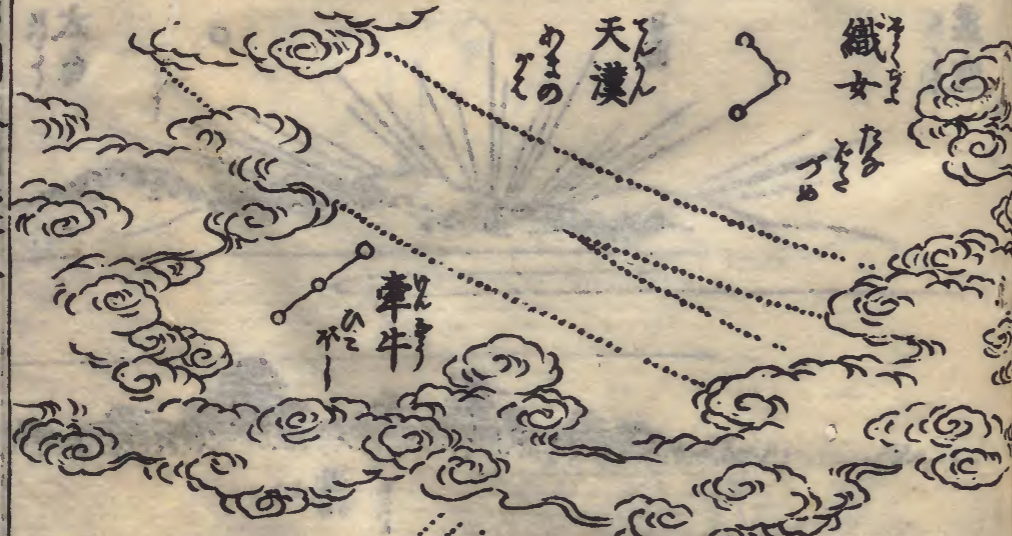 織女
しよくぢよ
たな
ばた
づめ
天漢
てんかん
あまの
がは
牽牛
けんぎう
ひこ
ぼし